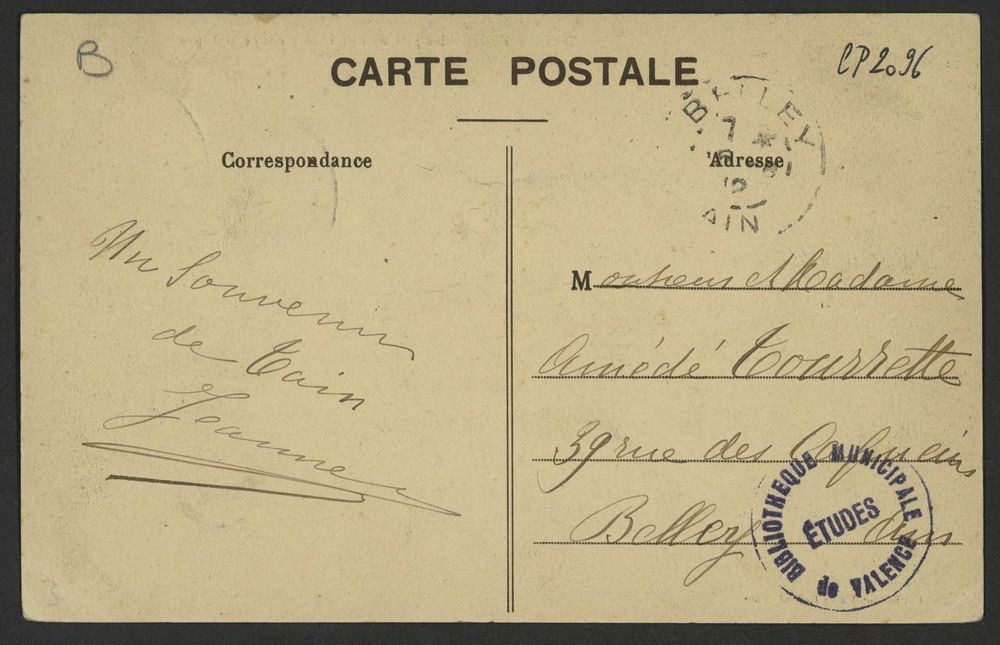 B
CP2096
CARTE POSTALE
BELLEY
7
AIN
Correspondance
Adresse
Un Souvenir
de Tain
Jeanne
Monsieur et Madame
Amédé Tourrette
39 rue des Capucins
Belley Ain
BIBLIOTHEQUE MUNICIPALE
ÉTUDES
de VALENCE